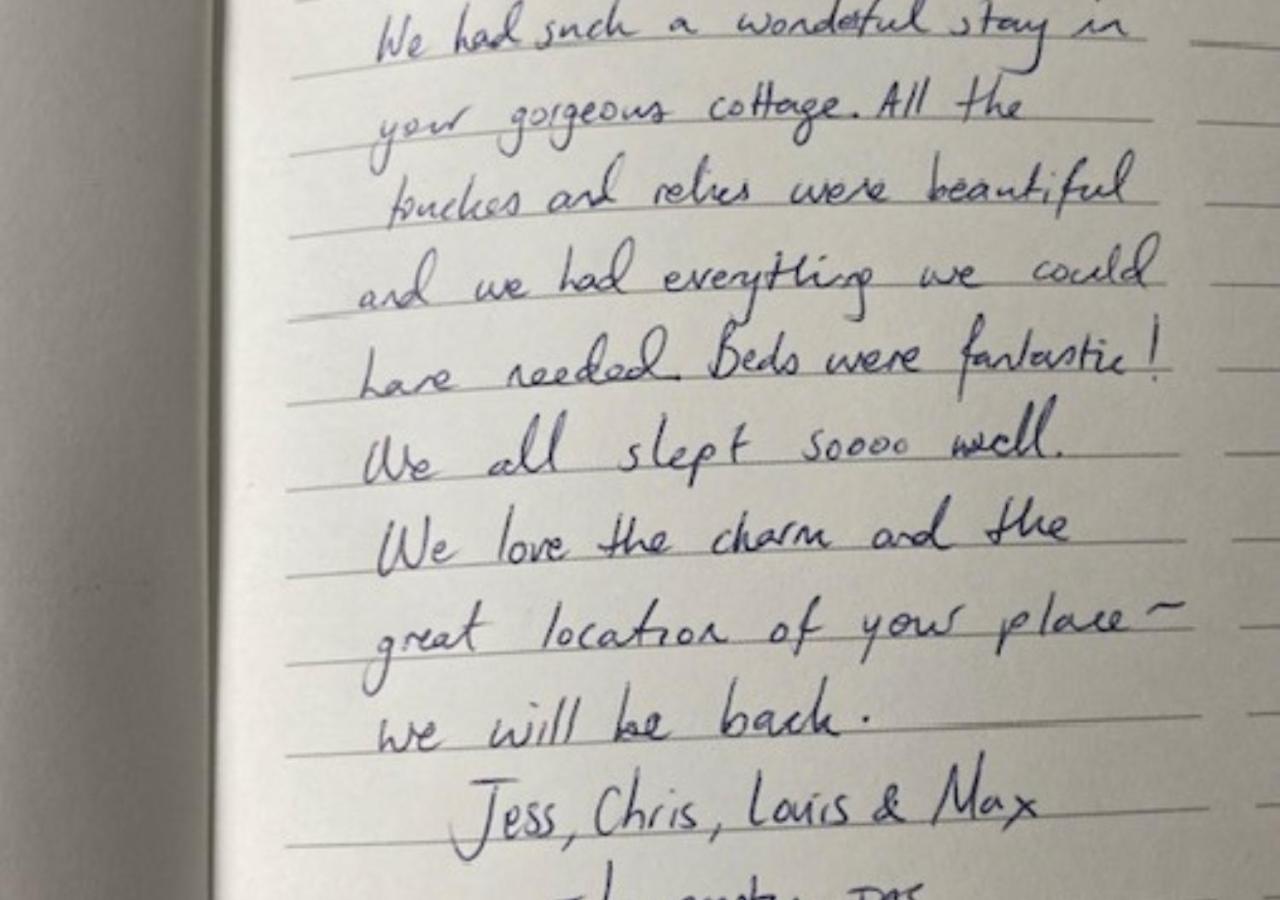 We had such a wonderful stay in
your gorgeous cottage. All the
touches and relics were beautiful
and we had everything we could
have needed. Beds were fantastic!
We all slept soooo well.
We love the charm and the
great location of your place ~
we will be back.
Jess, Chris, Louis & Max